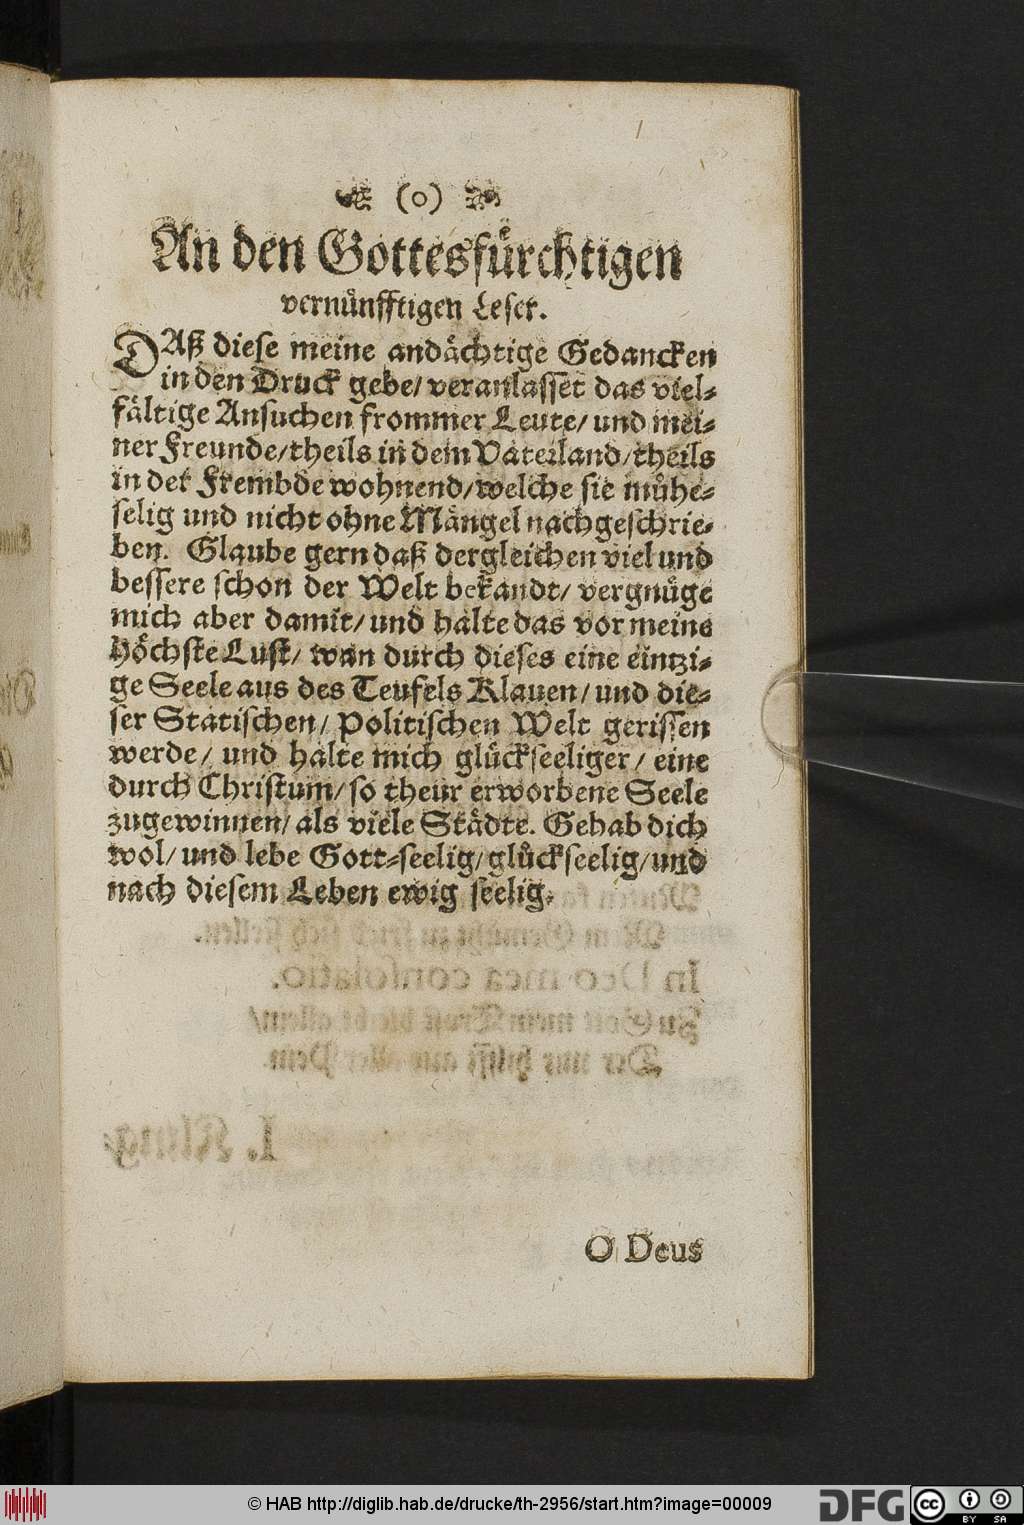 (o)
An den Gottesfürchtigen
vernünfftigen Leser.
DAß diese meine andächtige Gedancken
in den Druck gebe/ veranlasset das viel-
fältige Ansuchen frommer Leute/ und mei-
ner Freunde/theils in dem Vaterland/theils
in der Frembde wohnend/welche sie mühe-
selig und nicht ohne Mängel nachgeschrie-
ben. Glaube gern daß dergleichen viel und
bessere schon der Welt bekandt/ vergnüge
mich aber damit/ und halte das vor meine
höchste Lust/ wan durch dieses eine eintzi-
ge Seele aus des Teufels Klauen/ und die-
ser Statischen/ Politischen Welt gerissen
werde/ und halte mich glückseeliger/ eine
durch Christum/ so theur erworbene Seele
zugewinnen/ als viele Städte. Gehab dich
wol/ und lebe Gott-seelig/ glückseelig/und
nach diesem Leben ewig seelig.
O Deus
© HAB http://diglib.hab.de/drucke/th-2956/start.htm?image=00009
DFG
cc
BY SA